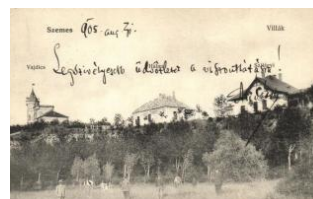 Szemes 905. aug
Villák
Vajdics
Legszivélyesebb üdvözlet a viszontlátásig!